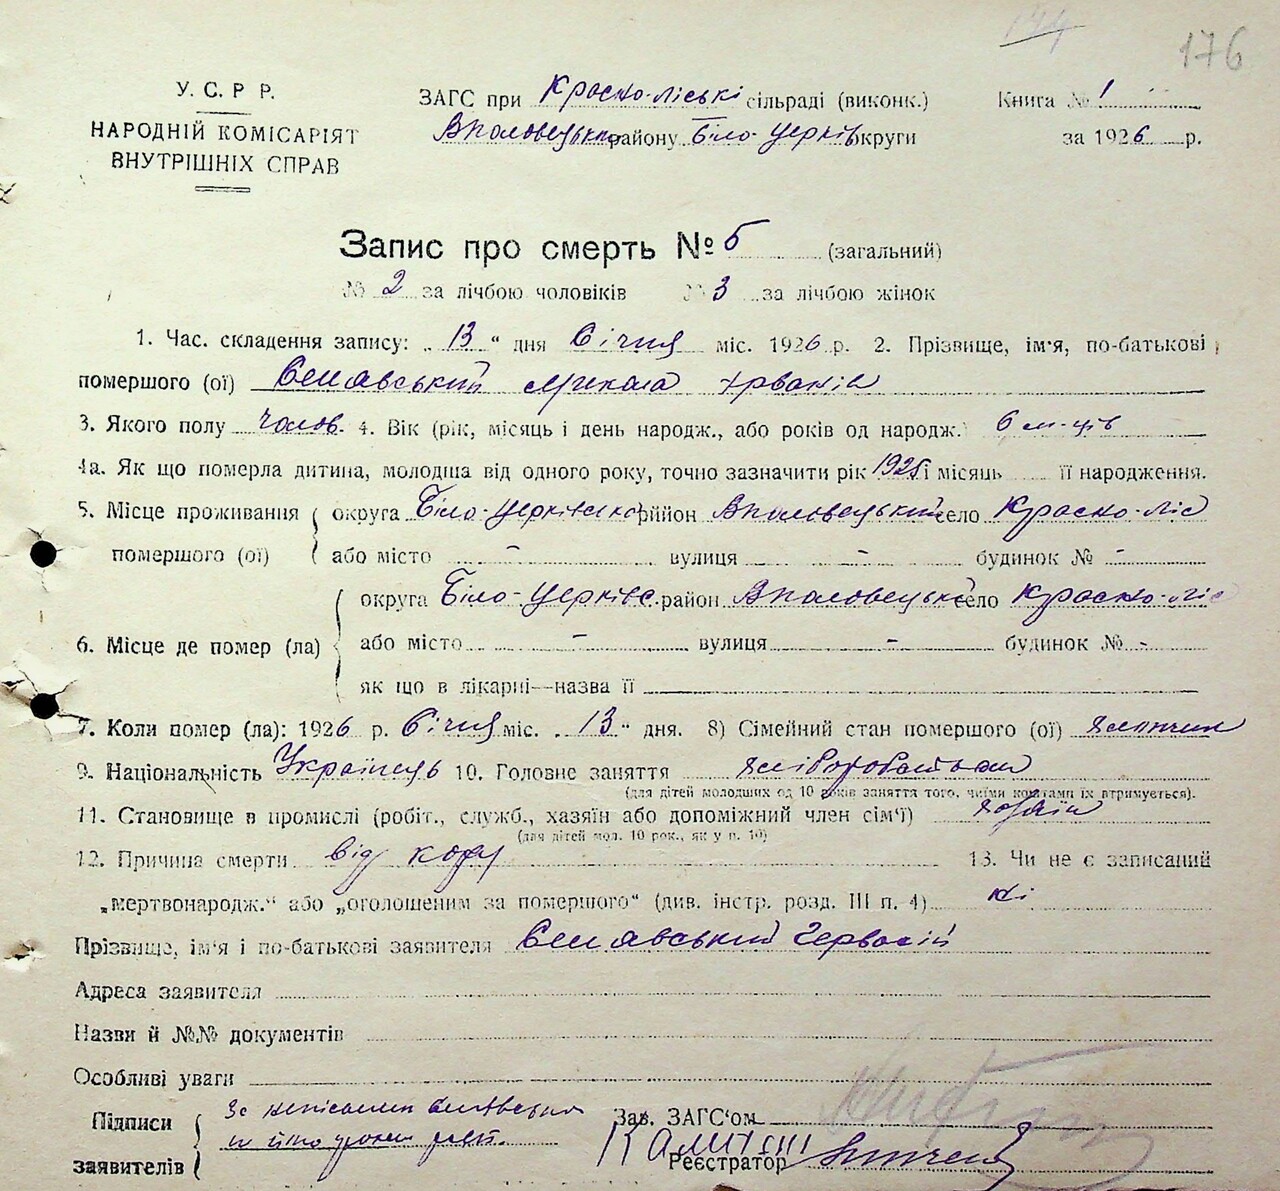 174
176
У. С. Р Р.
НАРОДНІЙ КОМІСАРІЯТ
ВНУТРІШНІХ СПРАВ
ЗАГС при Красно-ліські сільраді (виконк.)
району Біло-Церків округи
Книга № 1
за 1926 р.
Запис про смерть № 5 (загальний)
№ 2 за лічбою чоловіків № 3 за лічбою жінок
1. Час. складення запису: „ 13 “ дня Січня міс. 1926 р. 2. Прізвище, ім'я, по-батькові
помершого (ої) Микола
3. Якого полу Чолов. 4. Вік (рік, місяць і день народж., або років од народж.) 6 м-ців
4а. Як що померла дитина, молодша від одного року, точно зазначити рік 1925 і місяць її народження.
5. Місце проживання помершого (ої)
округа Біло-Церківська район село Красно-ліс
або місто - вулиця - будинок № -
6. Місце де помер (ла)
округа Біло-Церківс. район село Красно-ліс
або місто - вулиця - будинок № -
як що в лікарні—назва її
7. Коли помер (ла): 1926 р. Січня міс. „ 13 “ дня. 8) Сімейний стан помершого (ої)
9. Національність Українець 10. Головне заняття
(для дітей молодших од 10 років заняття того, чиїми коштами їх втримується).
11. Становище в промислі (робіт., служб., хазяїн або допоміжний член сім'ї) хазяїн
(для дітей мол. 10 рок., як у п. 10)
12. Причина смерти від кору 13. Чи не є записаний
„мертвонародж.“ або „оголошеним за помершого“ (див. інстр. розд. III п. 4) ні
Прізвище, ім'я і по-батькові заявителя
Адреса заявителя
Назви й №№ документів
Особливі уваги
Підписи
заявителів
Зав. ЗАГС'ом
Реєстратор